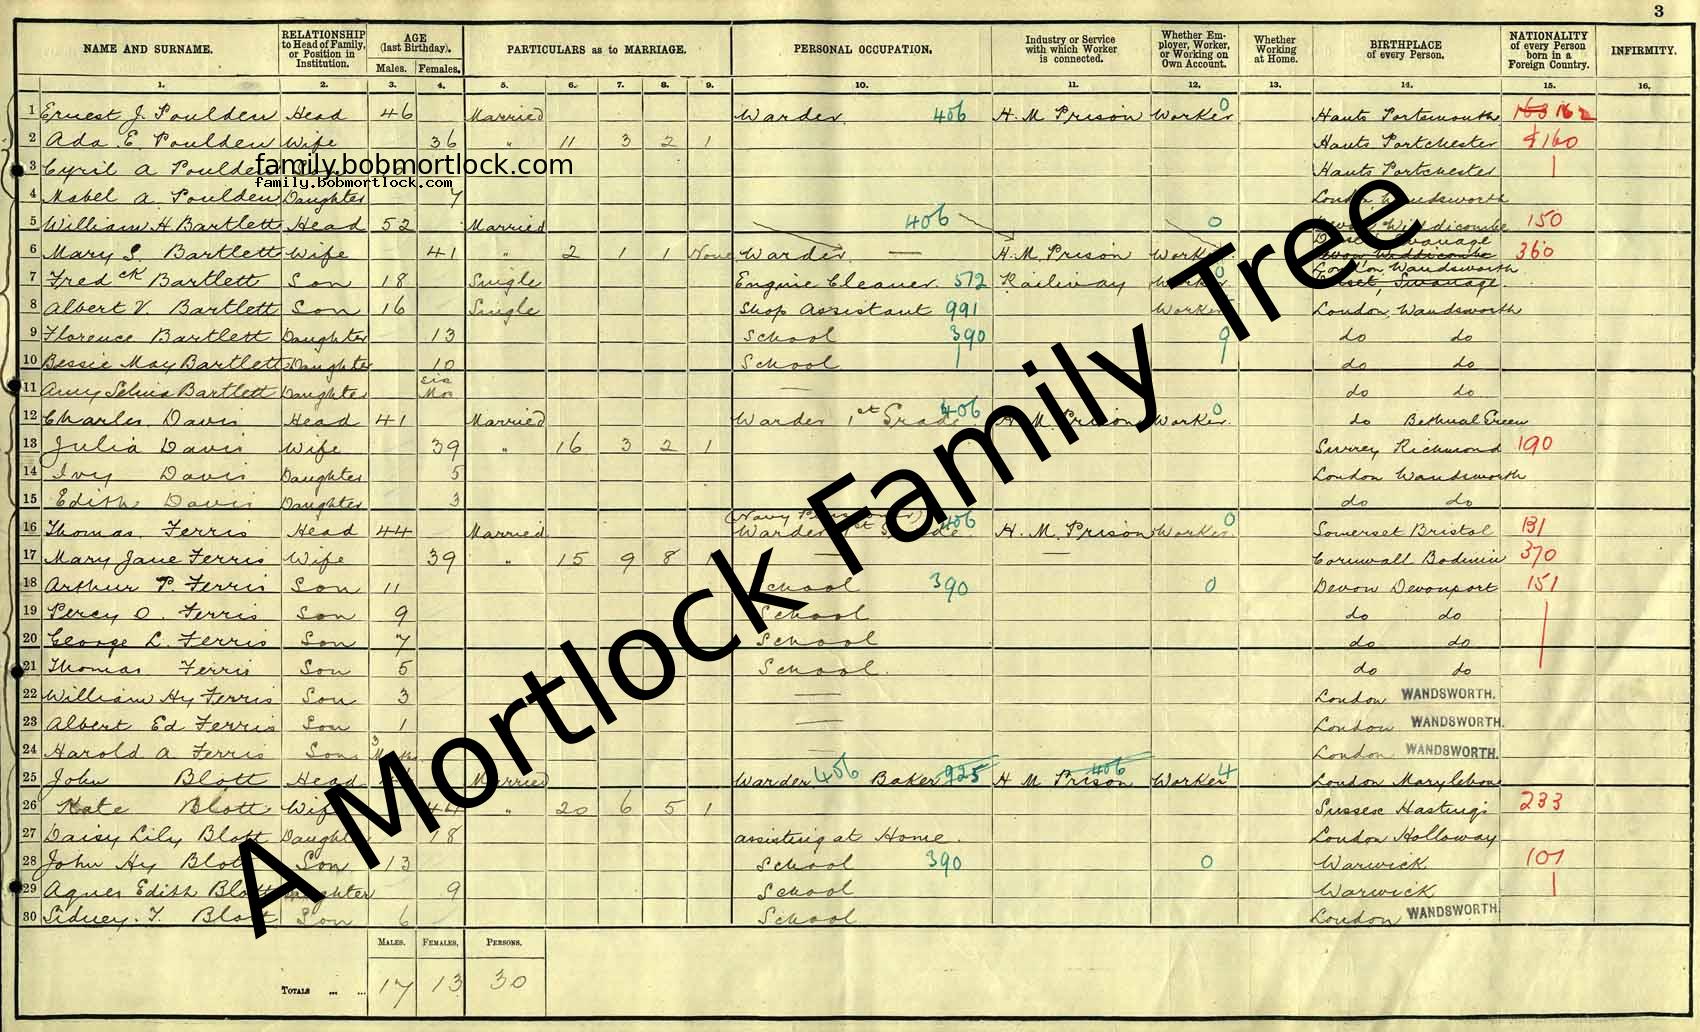 3
NAME AND SURNAME. RELATIONSHIP to Head of Family, or Position in Institution. AGE (last Birthday). Males. Females. PARTICULARS as to MARRIAGE. PERSONAL OCCUPATION. Industry or Service with which Worker is connected. Whether Employer, Worker, or Working on Own Account. Whether Working at Home. BIRTHPLACE of every Person. NATIONALITY of every Person born in a Foreign Country. INFIRMITY.
1. 2. 3. 4. 5. 6. 7. 8. 9. 10. 11. 12. 13. 14. 15. 16.
1 Ernest J. Poulden Head 46 Married Warder 406 H. M. Prison Worker 0 Hants Portsmouth 162
2 Ada E. Poulden Wife 36 " 11 3 2 1 Hants Portchester 160
3 Cyril A Poulden Hants Portchester
family.bobmortlock.com
family.bobmortlock.com
4 Mabel A. Poulden Daughter 7 London Wandsworth
5 William H Bartlett Head 52 Married 406 0 Widdicombe 150
6 Mary S. Bartlett Wife 41 " 2 1 1 None Warder. — H. M. Prison Worker Dorset Swanage Devon Widdicombe 360
7 Fredck Bartlett Son 18 Single Engine Cleaner. 572 Railway Worker 0 London, Wandsworth Dorset, Swanage.
8 Albert V. Bartlett Son 16 Single Shop Assistant 991 Worker London, Wandsworth
9 Florence Bartlett Daughter 13 School 390 do do
10 Bessie May Bartlett Daughter 10 School do do
11 Amy Selina Bartlett Daughter six Mos — do do
12 Charles Davis Head 41 Married Warder 1st Grade 406 H. M. Prison Worker. 0 do Bethnal Green
13 Julia Davis Wife 39 " 16 3 2 1 Surrey Richmond 190
14 Ivy Davis Daughter 5 London Wandsworth
15 Edith Davis Daughter 3 do do
16 Thomas Ferris Head 44 Married (Navy Pensioner) Warder 1st Grade. 406 H. M. Prison Worker 0 Somerset Bristol 131
17 Mary Jane Ferris Wife 39 " 15 9 8 1 — — Cornwall Bodmin 370
18 Arthur P. Ferris Son 11 School 390 0 Devon Devonport 151
19 Percy O. Ferris Son 9 School do do
20 George L. Ferris Son 7 School do do
21 Thomas Ferris Son 5 School. do do
22 William Hy Ferris Son 3 — London WANDSWORTH.
23 Albert Ed Ferris Son 1 — London WANDSWORTH.
24 Harold A Ferris Son 3 London WANDSWORTH.
25 John Blott Head Married Warder 406 Baker 925 H M Prison 406 Worker 4 London Marylebone
26 Kate Blott Wife 44 " 20 6 5 1 Sussex Hastings 233
27 Daisy Lily Blott Daughter 18 assisting at Home. London Holloway
28 John Hy Blott Son 13 School 390 0 Warwick 107
29 Agnes Edith Blott Daughter 9 School Warwick
30 Sidney. T. Blott Son 6 School London WANDSWORTH.
MALES. FEMALES. PERSONS.
TOTALS ... ... 17 13 30
A Mortlock Family Tree